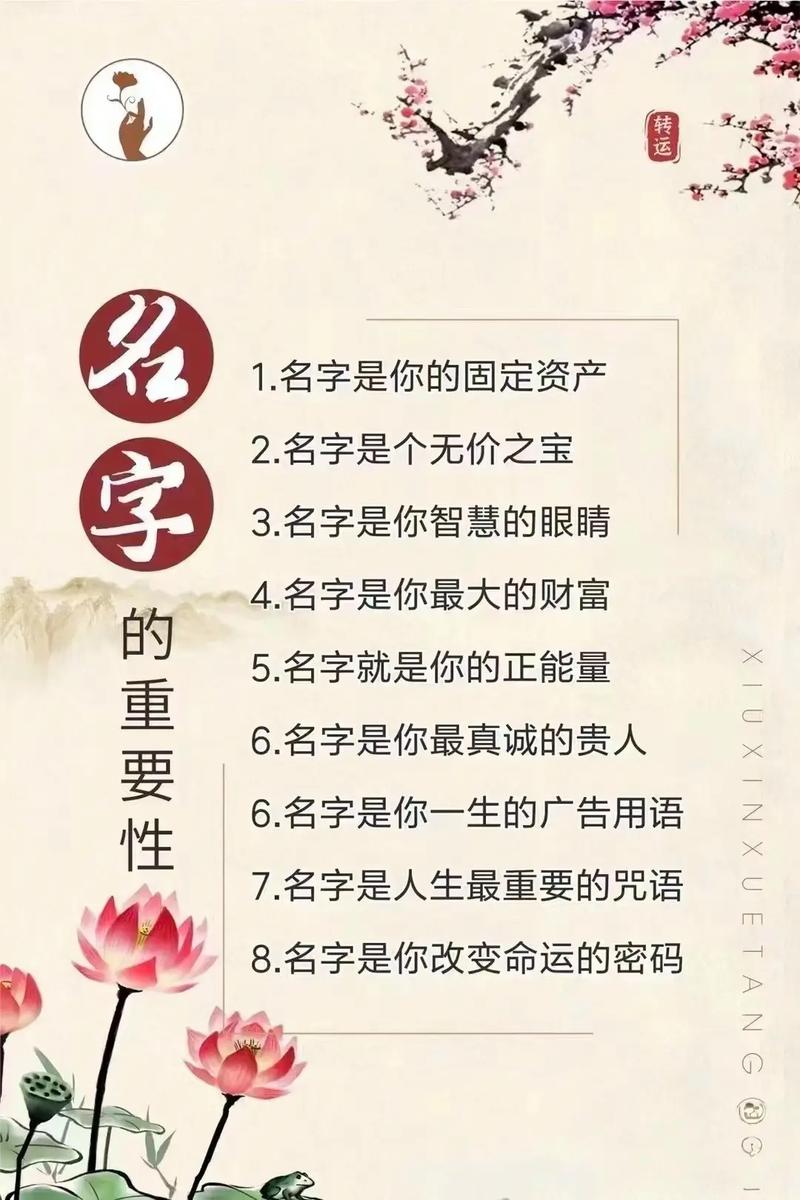 转运
名字的重要性
1.名字是你的固定资产
2.名字是个无价之宝
3.名字是你智慧的眼睛
4.名字是你最大的财富
5.名字就是你的正能量
6.名字是你最真诚的贵人
6.名字是你一生的广告用语
7.名字是人生最重要的咒语
8.名字是你改变命运的密码
XIUXINXUETANG